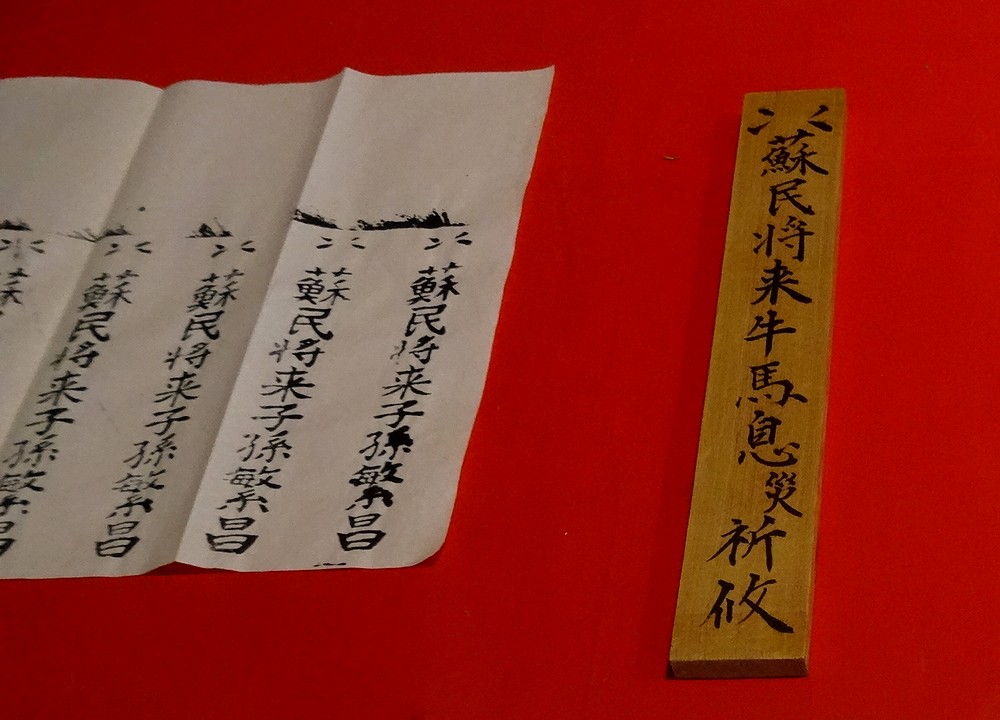 蘇民将来牛馬息災祈攸
蘇民将来子孫繁昌
蘇民将来子孫繁昌
蘇民将来子孫繁昌
蘇民将来子孫繁昌